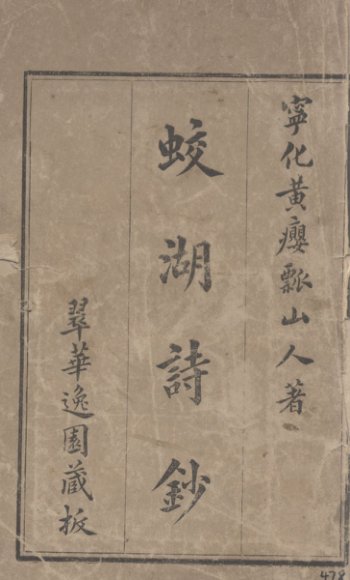 寧化黃癭瓢山人著
蛟湖詩鈔
翠華逸園蔵板
478